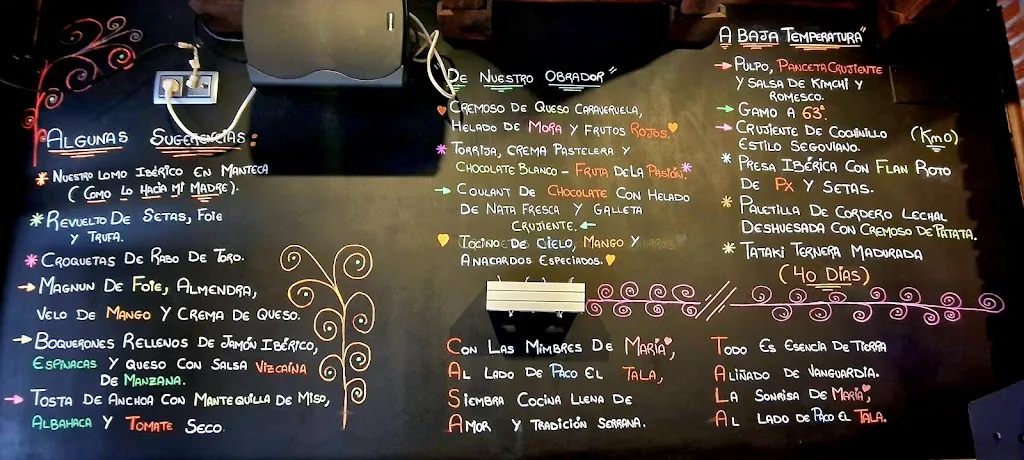 Algunas Sugerencias:
Nuestro Lomo Ibérico En Manteca
(Como Lo Hacia Mi Madre).
Revuelto De Setas, Foie
y Trufa.
Croquetas De Rabo De Toro.
Magnun De Foie, Almendra,
Velo De Mango Y Crema De Queso.
Boquerones Rellenos De Jamón Ibérico,
Espinacas Y Queso Con Salsa Vizcaína
De Manzana.
Tosta De Anchoa Con Mantequilla De Miso,
Albahaca Y Tomate Seco.
De Nuestro Obrador"
Cremoso De Queso Caraveruela,
Helado De Mora Y Frutos Rojos.
Torrija, Crema Pastelera Y
Chocolate Blanco - Fruta De La Pasión.
Coulant De Chocolate Con Helado
De Nata Fresca Y Galleta
Crujiente.
Tocino De Cielo, Mango Y
Anacardos Especiados.
A Baja Temperatura"
Pulpo, Panceta Crujiente
Y Salsa De Kimchi Y
Romesco.
Gamo A 63º
Crujiente De Cochinillo (Km0)
Estilo Segoviano.
Presa Ibérica Con Flan Roto
De Px Y Setas.
Paletilla De Cordero Lechal
Deshuesada Con Cremoso De Patata.
Tataki Ternera Madurada
(40 Días)
Con Las Mimbres De María,
Al Lado De Paco El Tala,
Siembra Cocina Llena De
Amor Y Tradición Serrana.
Todo Es Esencia De Tierra
Aliñado De Vanguardia.
La Sonrisa De María,
Al Lado De Paco El Tala.